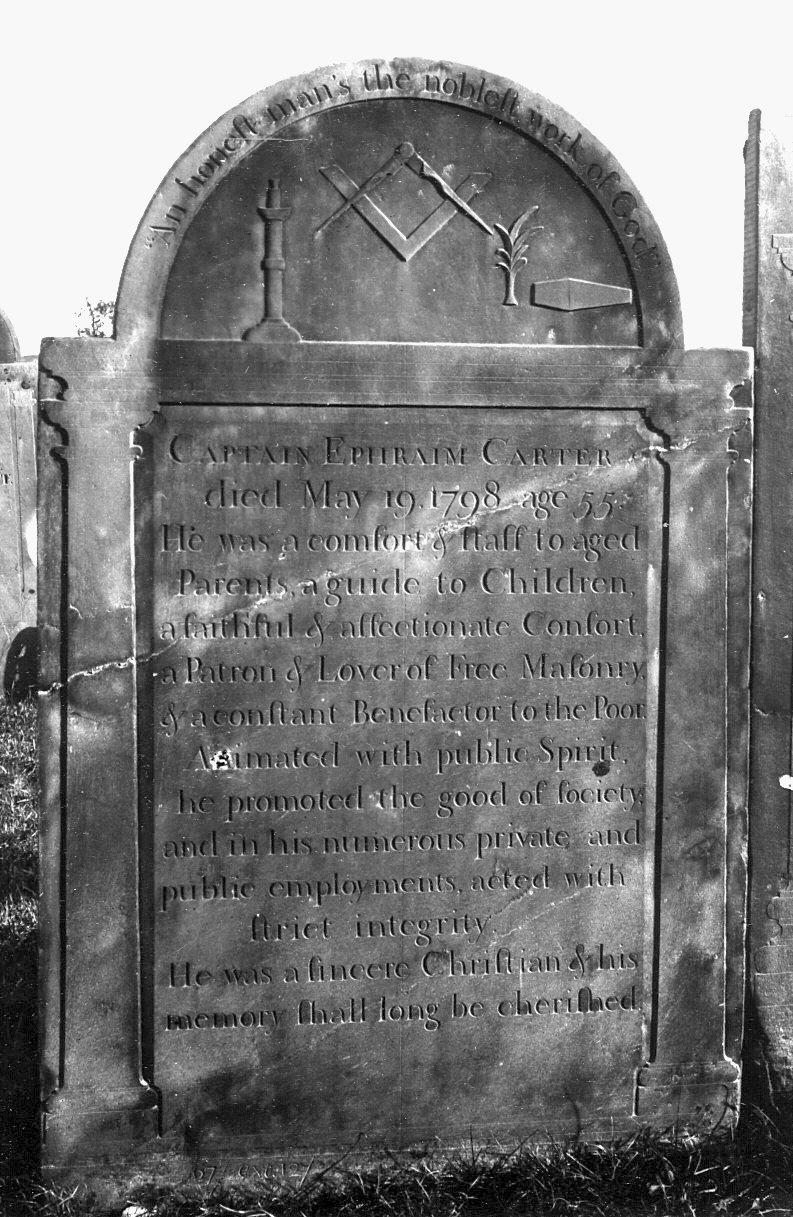 "An honeſt man's the nobleſt work of God"
CAPTAIN EPHRAIM CARTER
died May 19. 1798 age 55.
He was a comfort & ſtaff to aged
Parents, a guide to Children,
a faithful & affectionate Conſort,
a Patron & Lover of Free Maſonry,
& a conſtant Benefactor to the Poor.
Animated with public Spirit,
he promoted the good of ſociety,
and in his numerous private and
public employments, acted with
ſtrict integrity.
He was a ſincere Chriſtian & his
memory ſhall long be cheriſhed.